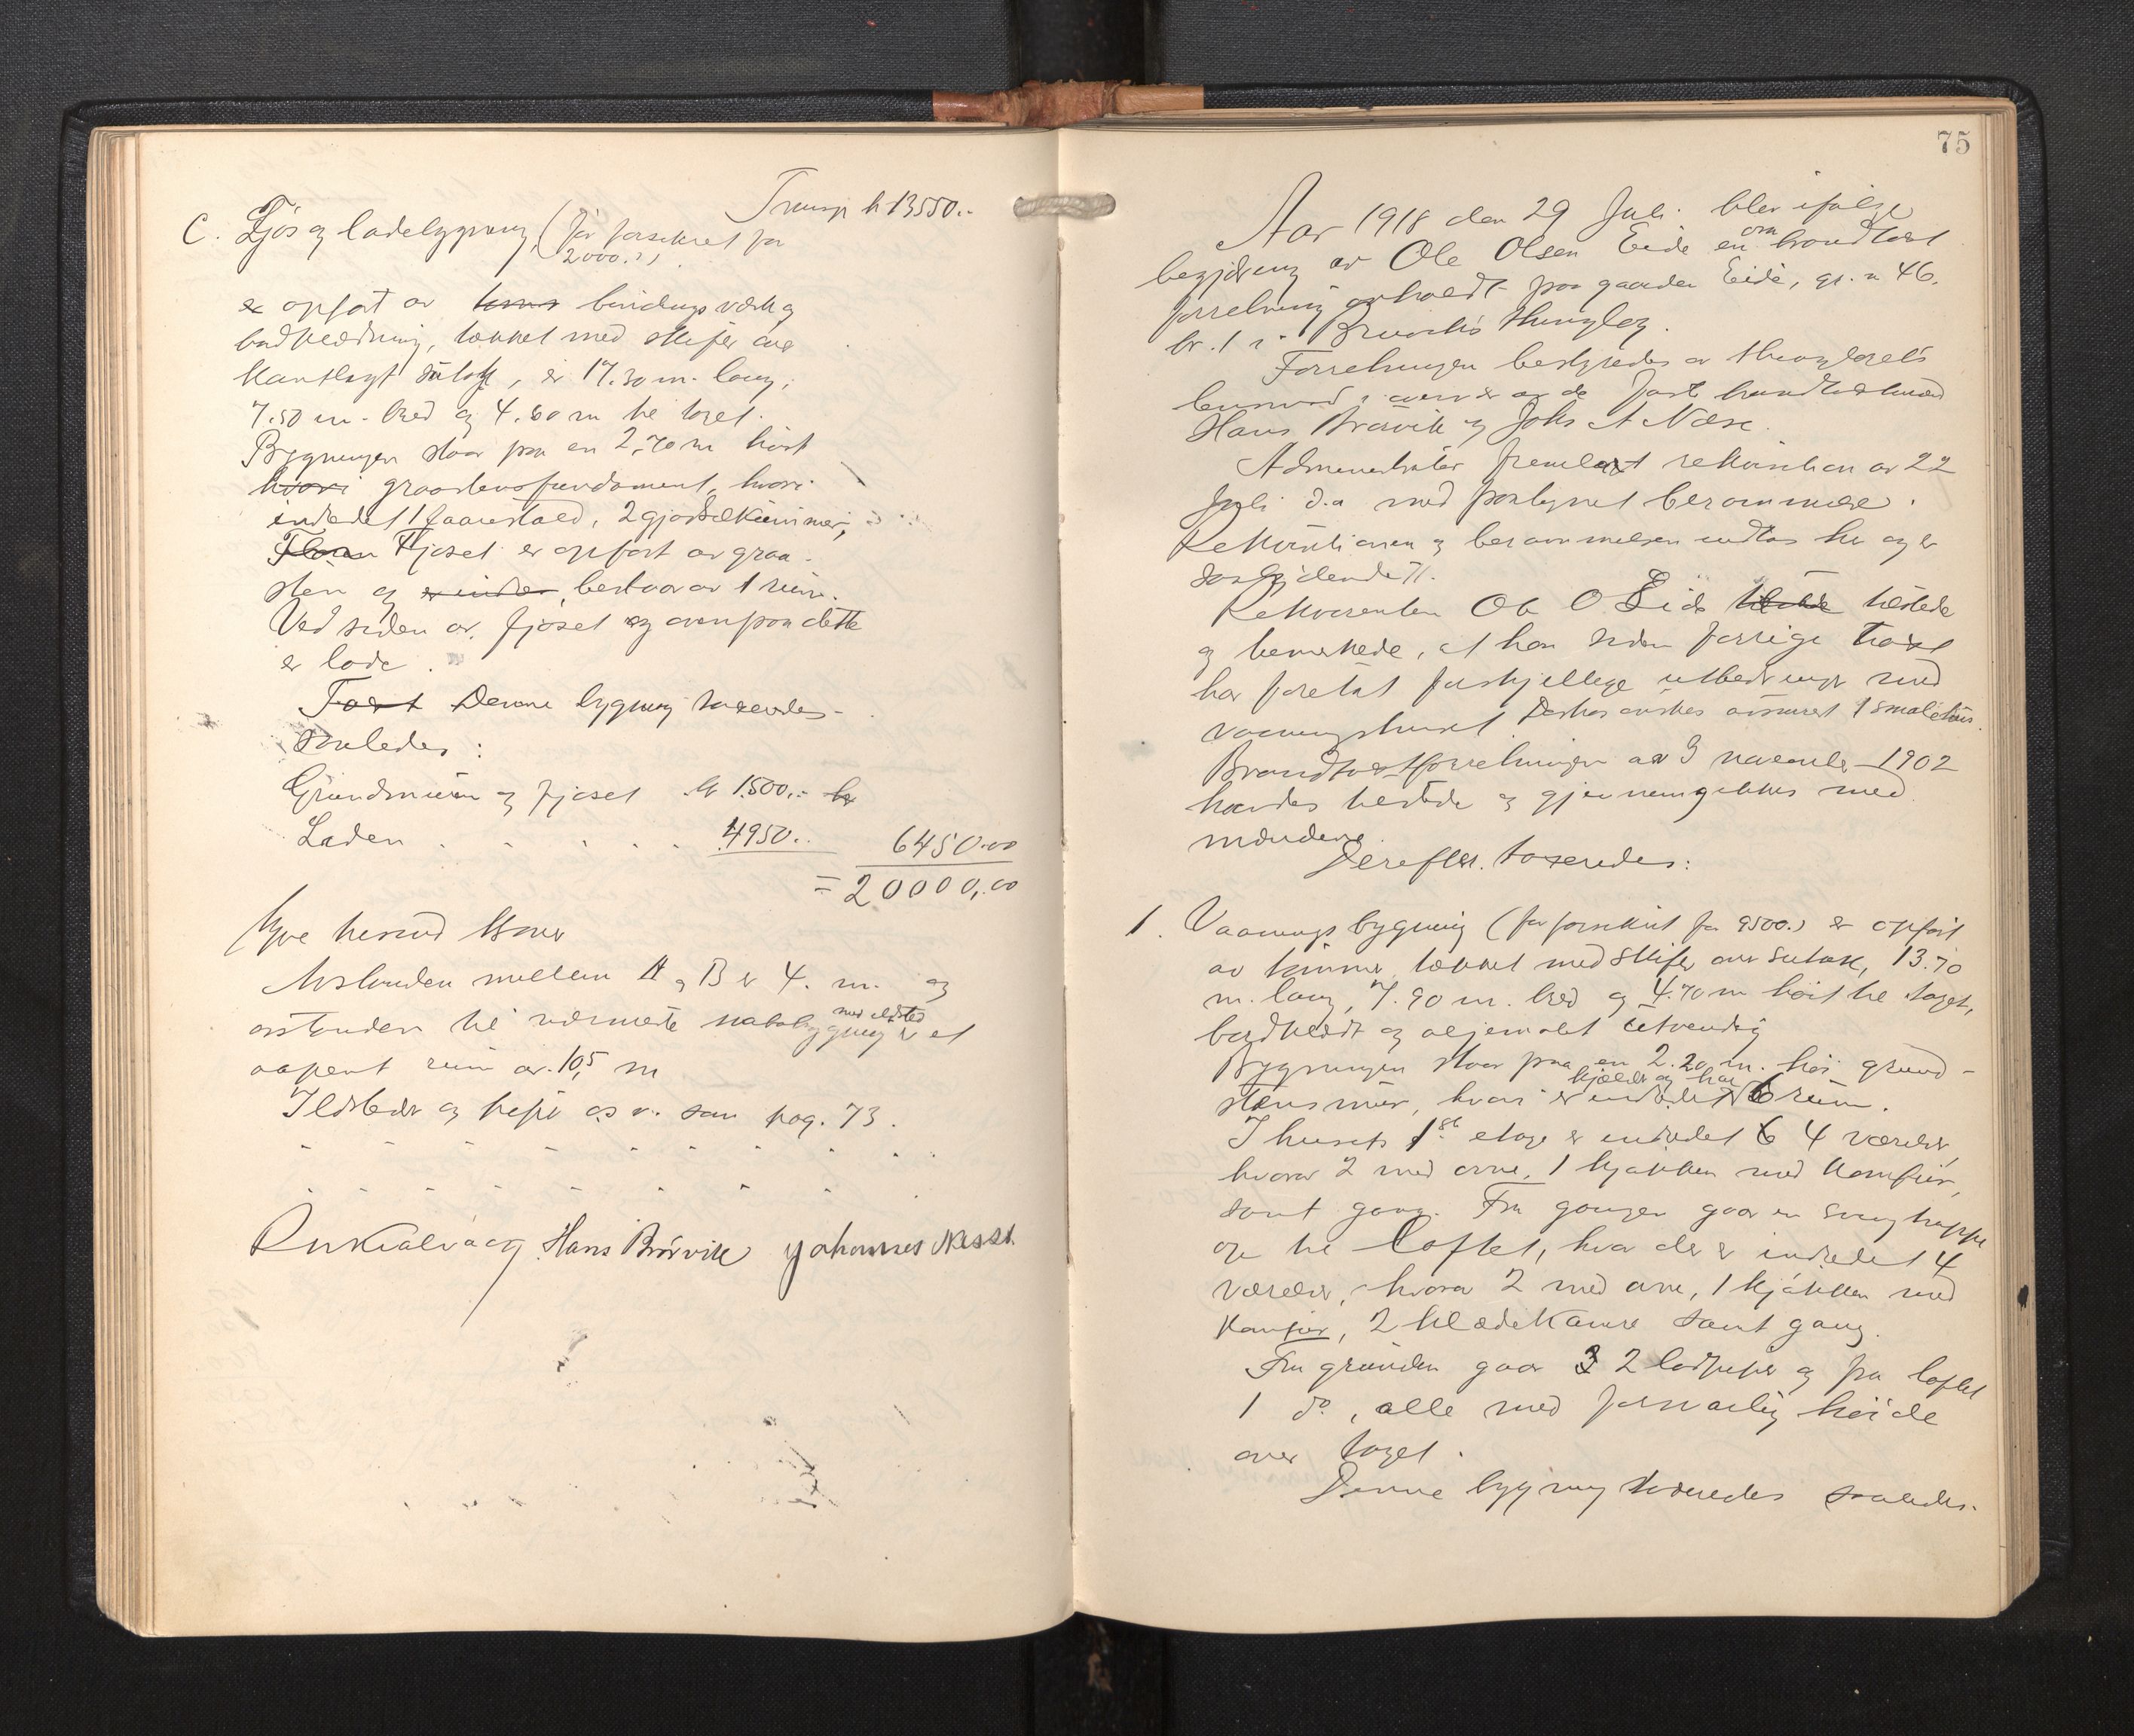 Transp kr 13550..
C. Fjös og ladebygning, (før forsikret for
2000..)
er opført av bindingsverk og
bordklædning, tækket med skifer over
kantlagt sutak, er 17.30 m. lang,
7.50 m. bred og 4.80 m til taget.
Bygningen staar paa en 2,70 m høit
hvori graastensfundament, hvori
indredet 1 faarestald, 2 gjødselkummer,
Fjoset er opført av graa-
sten og er inder bestaar av 1 rum.
Ved siden av fjoset og ovenpaa dette
er lade.
Taxt Denne bygning taxeredes
saaledes:
Grundmuren og fjoset kr 1500.- kr
Laden . . . . . . 4950.. 6450.00
= 20000,.00
Tyve tusend kroner
Avstanden mellem A og B er 4. m. og
avstanden til nærmeste nabobygning med ildsted er et
aapent rum av 10,5 m
Ildsteder og piper o.s.v. som pag. 73.
Hans Brörvik Johannes Næss
75
Aar 1918 den 29 Juli blev ifølge
begjæring av Ole Olsen Eide en om brandtaxt
forretning avholdt paa gaarden Eide, gr. n 46,
br. 1 i Bruviks thinglag.
Forretningen bestyredes av thinglagets
lensmand i nærvær av de faste brandtaxtmænd
Hans Brørvik og Johs A Næse.
Administrator fremlagt rekvisition av 22
Juli d.a med paategnet berammelse.
Rekvisitionen og berammelsen indtas her og er
saalydende //.
Rekvirenten Ole O Eide tilstede
og bemerkede, at han siden forrige taxt
har foretat forskjellige utbedringer med
vaaningshuset. Desuten ønskes assurert 1 smalehus.
Brandtaxtforretningen av 3 november 1902
havdes tilstede og gjennemgikkes med
mændene.
Derefter taxeredes:
1. Vaaningsbygning (før forsikret for 9500.) er opført
av tømmer, tækket med skifer over sutak, 13.70
m. lang, 7.90 m. bred og 4.70 m høit til taget,
bordklædt og oljemalet utvendig
Bygningen staar paa en 2.20 m. høi grund-
stensmur, hvori er indredet kjælder og har 6 rum.
I husets 1ste etage er indredet 6 4 værelser,
hvorav 2 med ovne, 1 kjøkken med komfur,
samt gang. Fra gangen gaar en svingtrappe
op til loftet, hvor der er indredet 4
værelser, hvorav 2 med ovne, 1 kjøkken med
Komfur, 2 klædekamre samt gang.
Fra grunden gaar 3 2 lodpiper og fra loftet
1 do, alle med forsvarlig høide
over taget.
Denne bygning taxeredes saaledes.